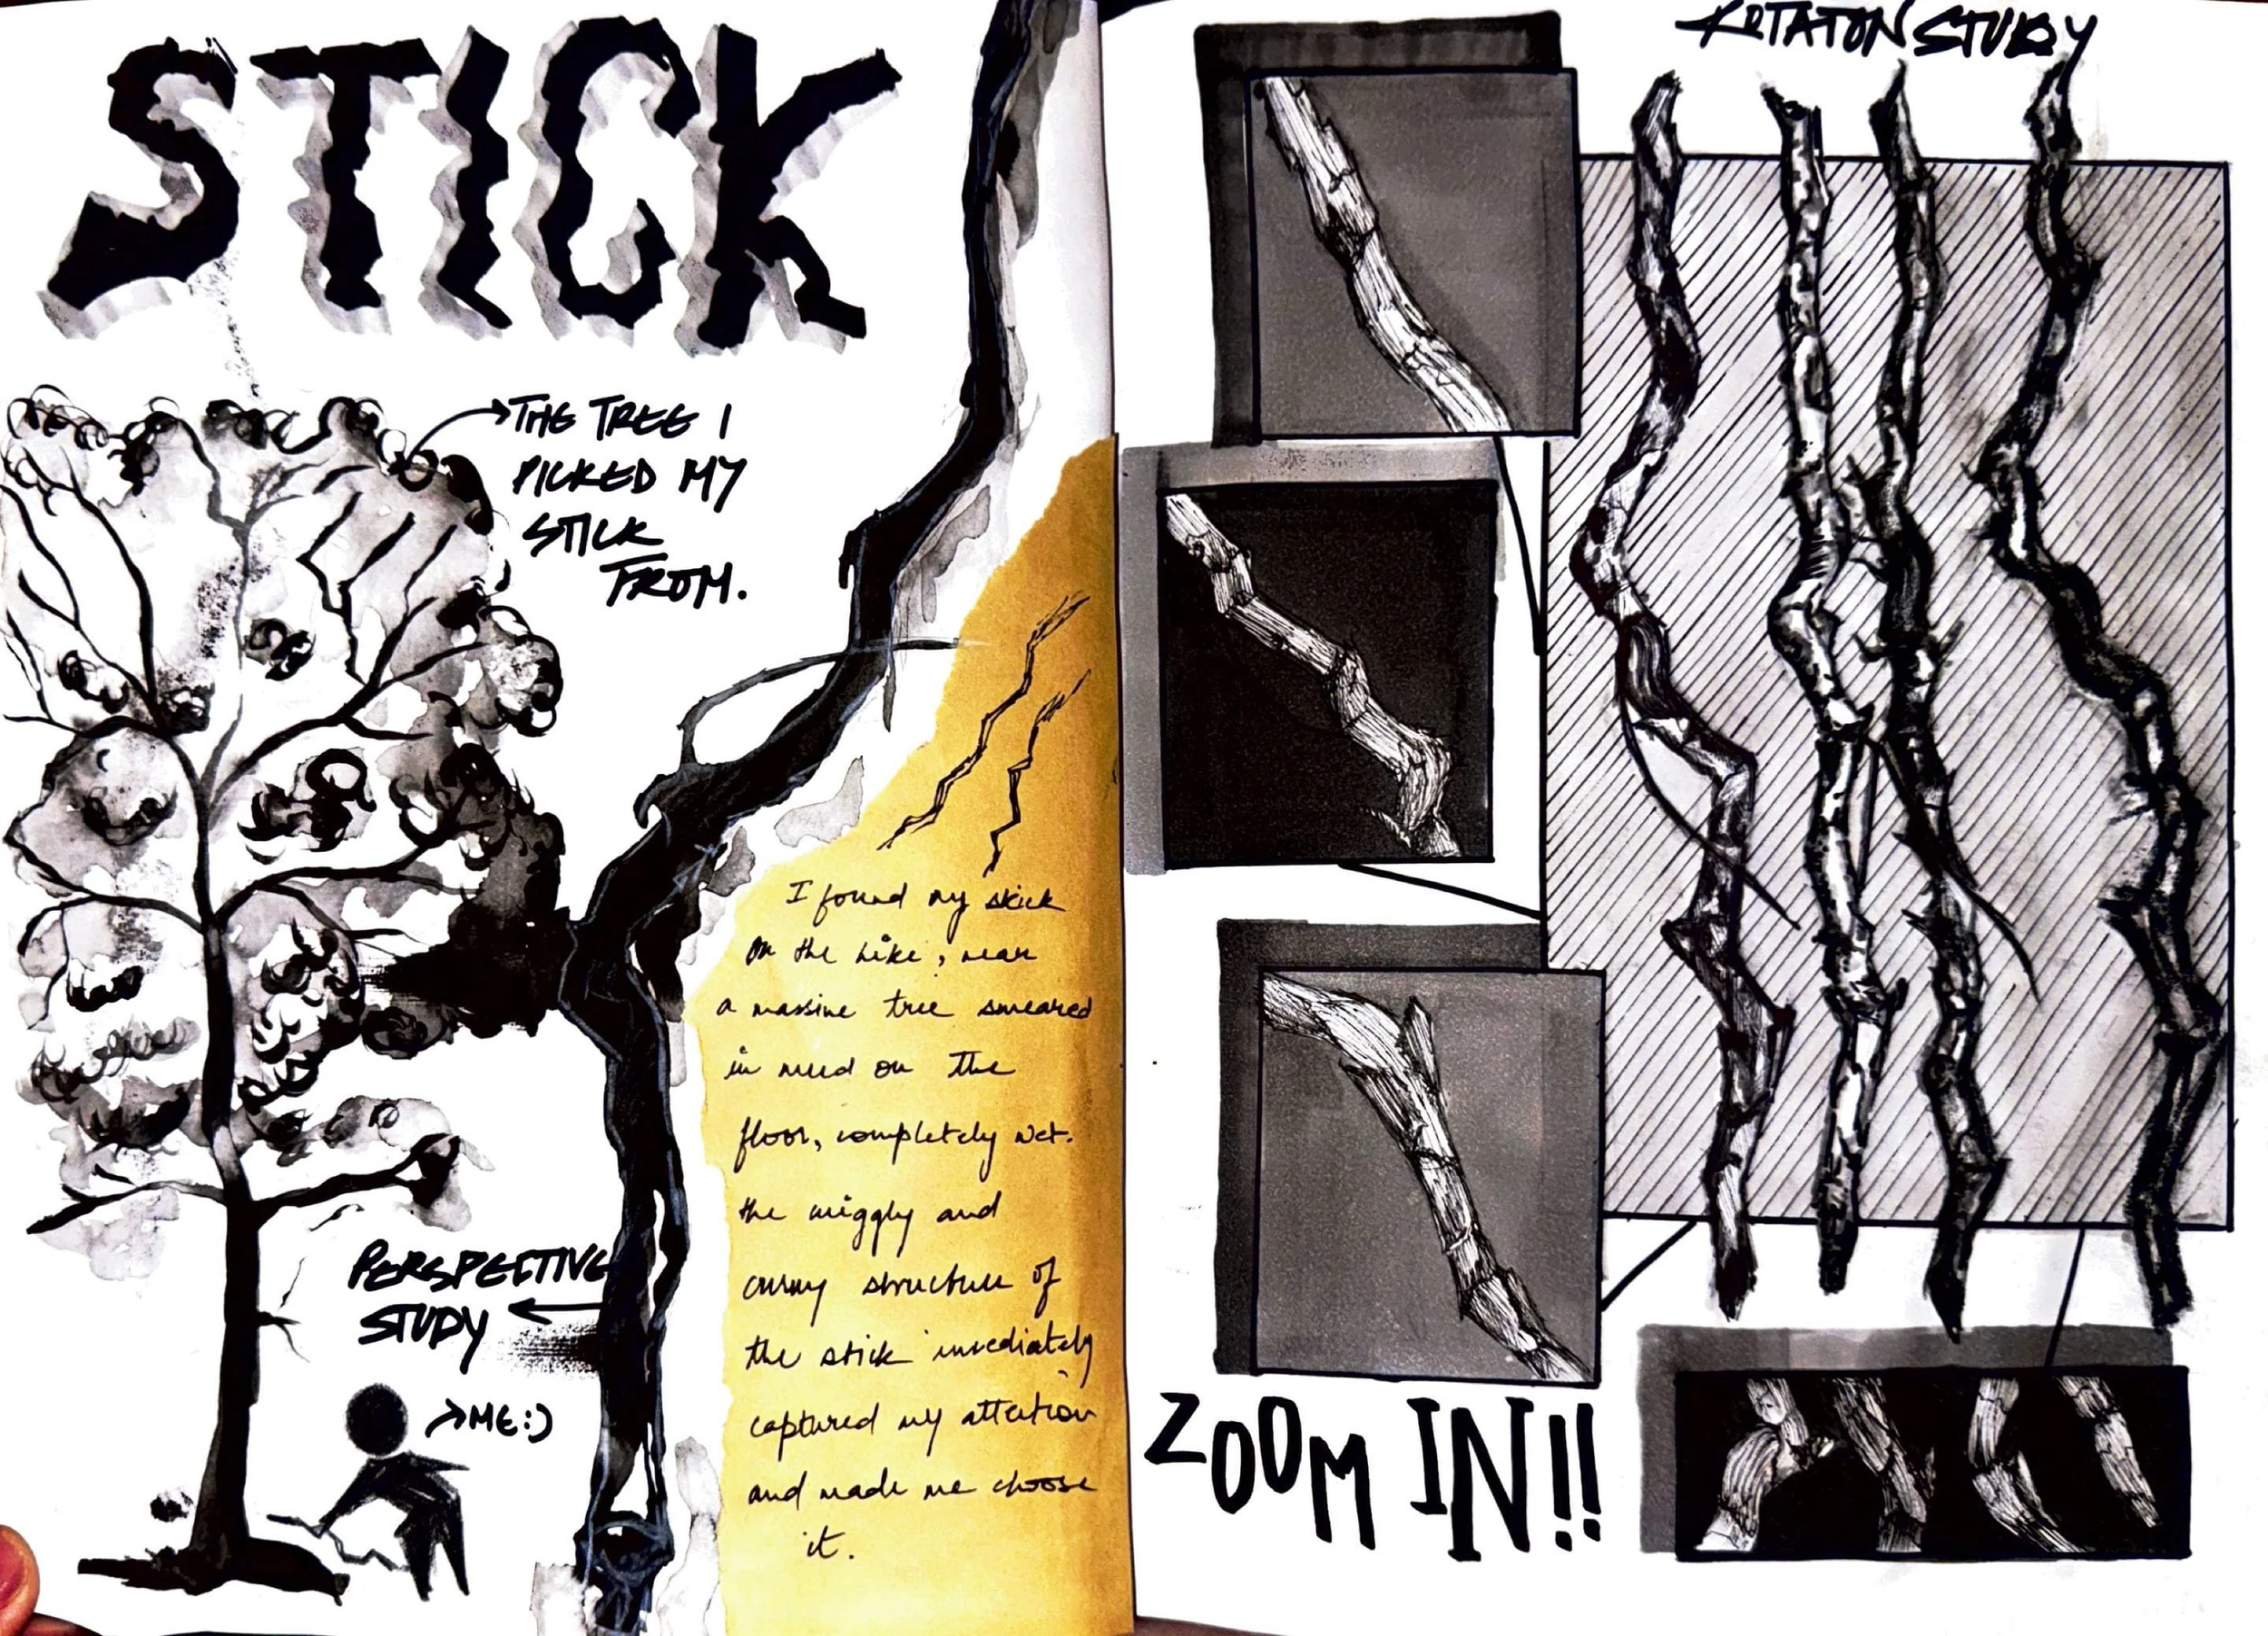 STICK
THE TREE I
PICKED MY
STICK
FROM.
I found my stick
on the hike, near
a massive tree smeared
in mud on the
floor, completely wet.
the wiggly and
curvy structure of
the stick immediately
captured my attention
and made me choose
it.
PERSPECTIVE
STUDY
ME:)
ROTATON STUDY
ZOOM IN!!